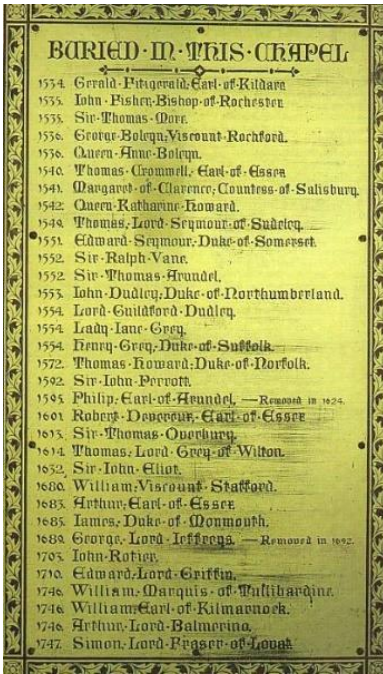 BURIED·IN·THIS·CHAPEL
1534. Gerald·Fitzgerald·Earl·of·Kildare
1535. John·Fisher,·Bishop·of·Rochester
1535. Sir·Thomas·More.
1536. George·Boleyn,·Viscount·Rochford.
1536. Queen·Anne·Boleyn.
1540. Thomas·Cromwell,·Earl·of·Essex
1541. Margaret·of·Clarence,·Countess·of·Salisbury.
1542. Queen·Katharine·Howard.
1549. Thomas,·Lord·Seymour·of·Sudeley.
1551. Edward·Seymour,·Duke·of·Somerset.
1552. Sir·Ralph·Vane.
1552. Sir·Thomas·Arundel.
1553. John·Dudley,·Duke·of·Northumberland.
1554. Lord·Guildford·Dudley.
1554. Lady·Jane·Grey.
1554. Henry·Grey,·Duke·of·Suffolk.
1572. Thomas·Howard,·Duke·of·Norfolk.
1592. Sir·John·Perrott.
1595. Philip,·Earl·of·Arundel. — Removed in 1624.
1601. Robert·Devereux,·Earl·of·Essex
1613. Sir·Thomas·Overbury.
1614. Thomas,·Lord·Grey·of·Wilton.
1632. Sir·John·Eliot.
1680. William,·Viscount·Stafford.
1683. Arthur,·Earl·of·Essex
1685. James,·Duke·of·Monmouth.
1689. George,·Lord·Jeffreys. — Removed in 1692.
1703. John·Rotier.
1710. Edward,·Lord·Griffin.
1746. William,·Marquis·of·Tullibardine.
1746. William,·Earl·of·Kilmarnock.
1746. Arthur,·Lord·Balmerino.
1747. Simon,·Lord·Fraser·of·Lovat